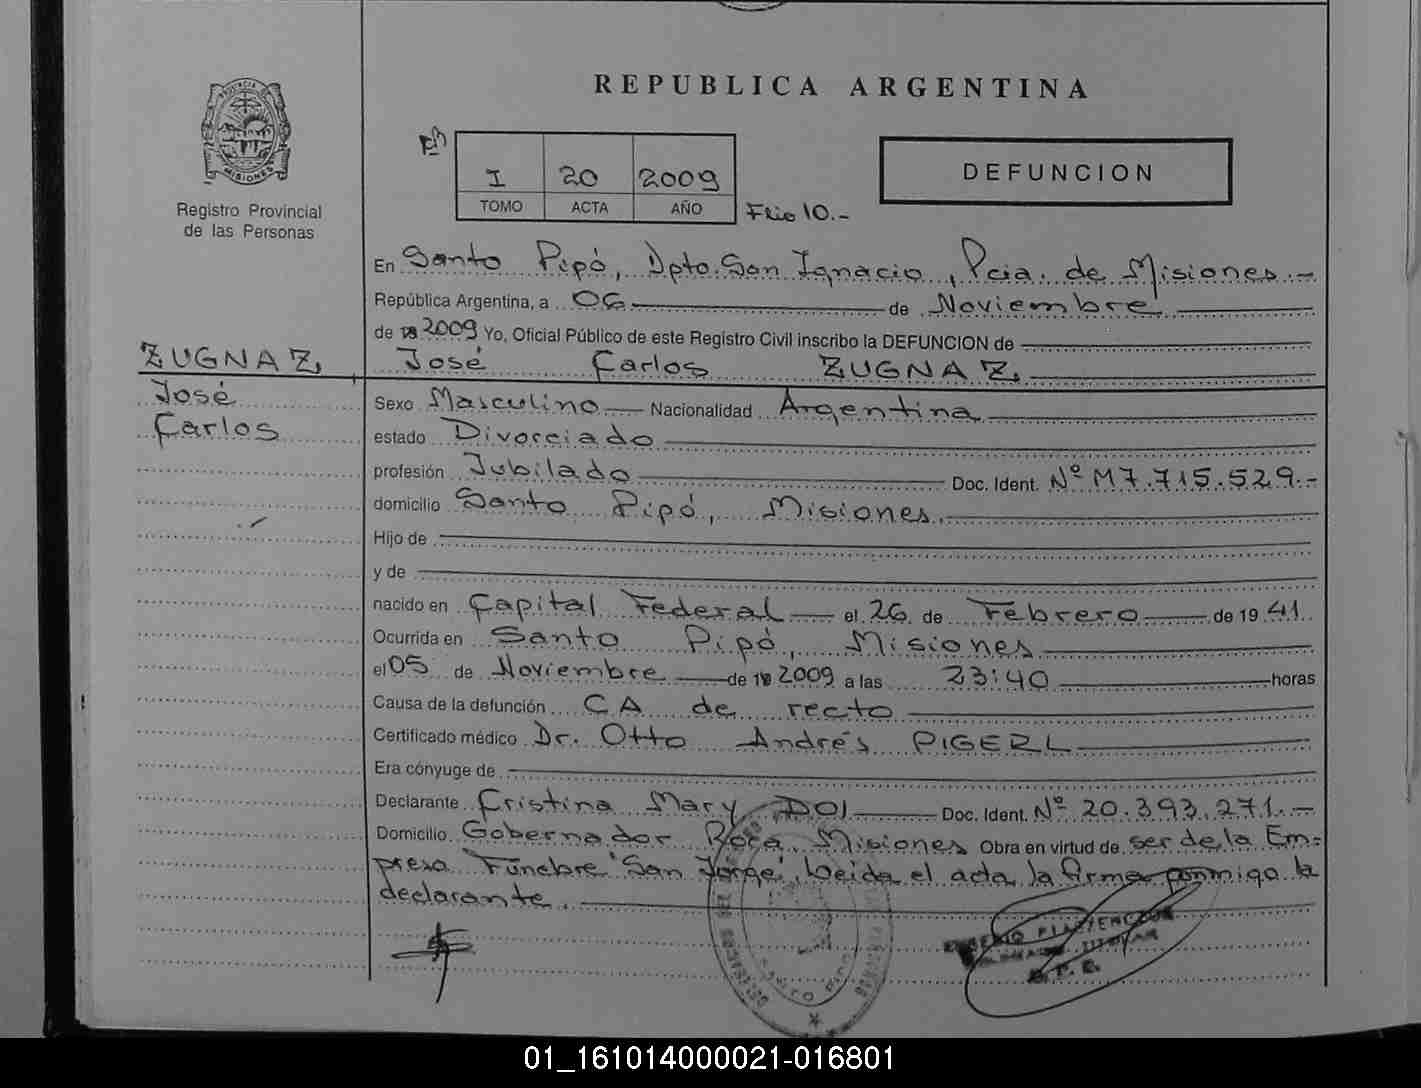 REPUBLICA ARGENTINA
PROVINCIA DE
MISIONES
Registro Provincial
de las Personas
I 20 2009
TOMO ACTA AÑO
Flio 10.-
DEFUNCION
En Santo Pipó, Dpto. San Ignacio, Pcia. de Misiones.-
República Argentina, a 06 de Noviembre
de 2009 Yo, Oficial Público de este Registro Civil inscribo la DEFUNCION de
José Carlos ZUGNAZ
ZUGNAZ
José
Carlos
Sexo Masculino Nacionalidad Argentina
estado Divorciado
profesión Jubilado Doc. Ident. Nº M7.715.529.-
domicilio Santo Pipó, Misiones.
Hijo de
y de
nacido en Capital Federal el 26 de Febrero de 1941.
Ocurrida en Santo Pipó, Misiones
el 05 de Noviembre de 2009 a las 23:40 horas
Causa de la defunción CA de recto
Certificado médico Dr. Otto Andrés PIGERL
Era cónyuge de
Declarante Cristina Mary DOI Doc. Ident. Nº 20.393.271.-
Domicilio Gobernador Roca, Misiones Obra en virtud de ser de la Em-
presa Fúnebre "San Jorge". Leida el acta, la firma conmigo la
declarante.
SANTO PIPO
01_161014000021-016801